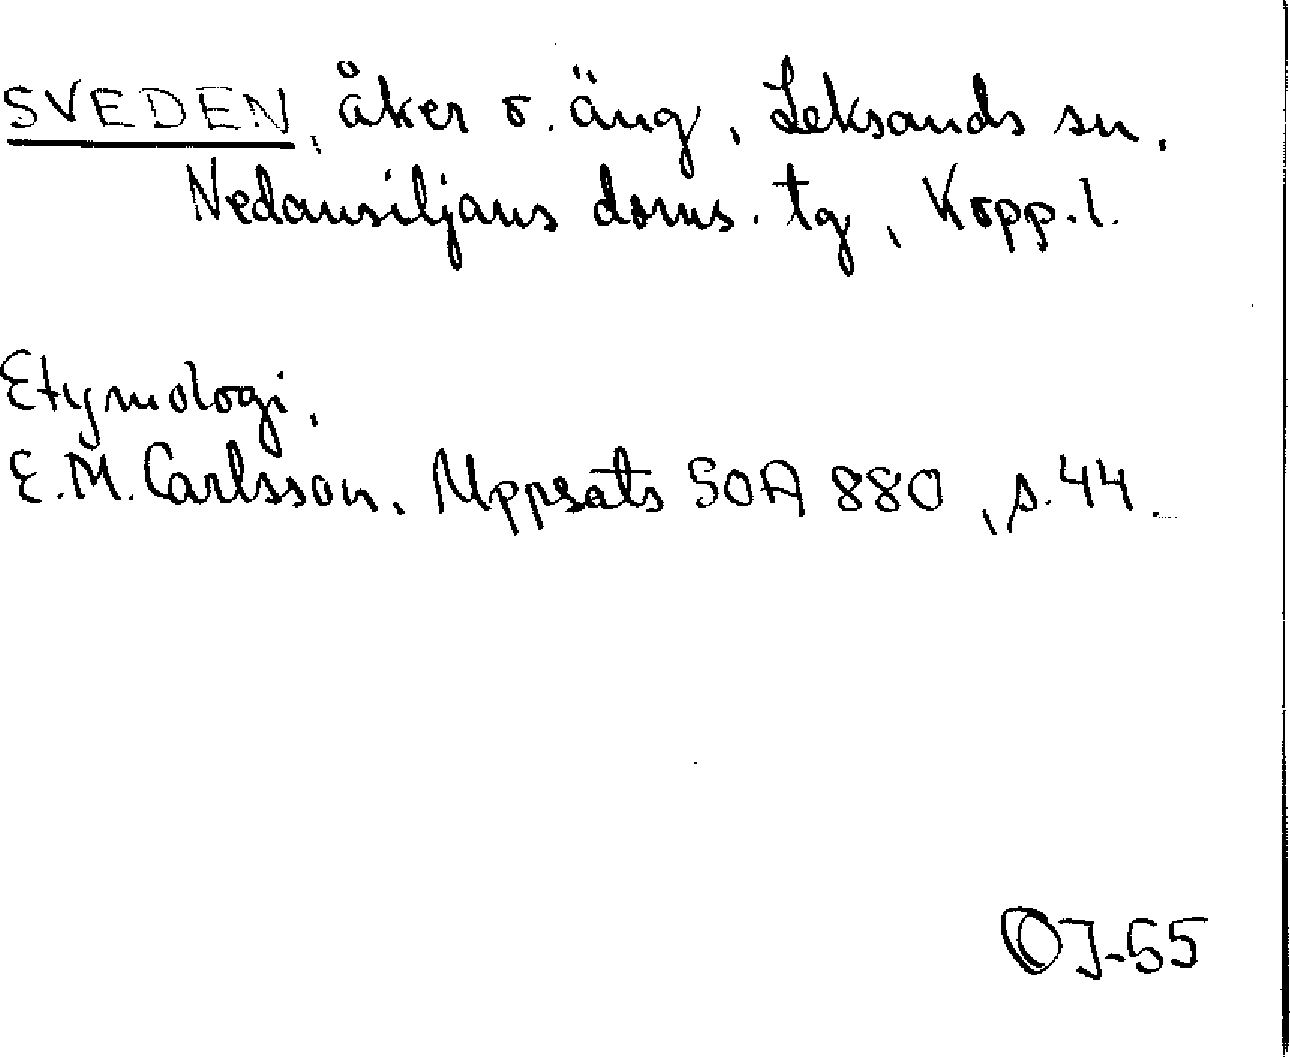 SVEDEN, åker o. äng, Leksands sn,
Nedansiljans doms. tg, Kopp. l.
Etymologi.
E.M. Carlsson. Uppsats SOA 880, s. 44.
OJ-55